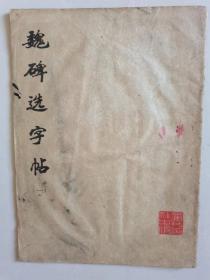 魏碑选字帖(一)